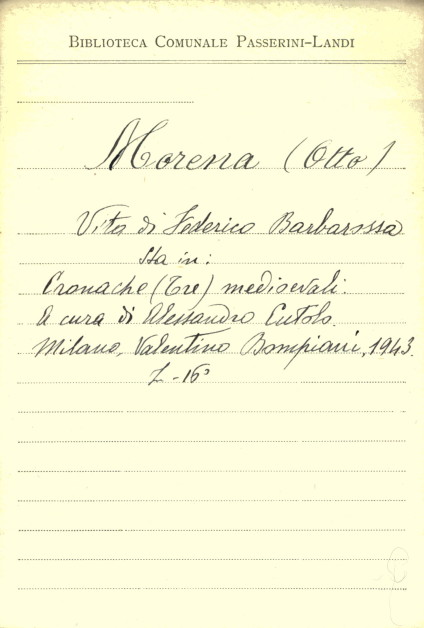 BIBLIOTECA COMUNALE PASSERINI-LANDI
Morena (Otto)
Vita di Federico Barbarossa
Sta in:
Cronache (Tre) medioevali
A cura di Alessandro Cutolo.
Milano, Valentino Bompiani, 1943.
-16°